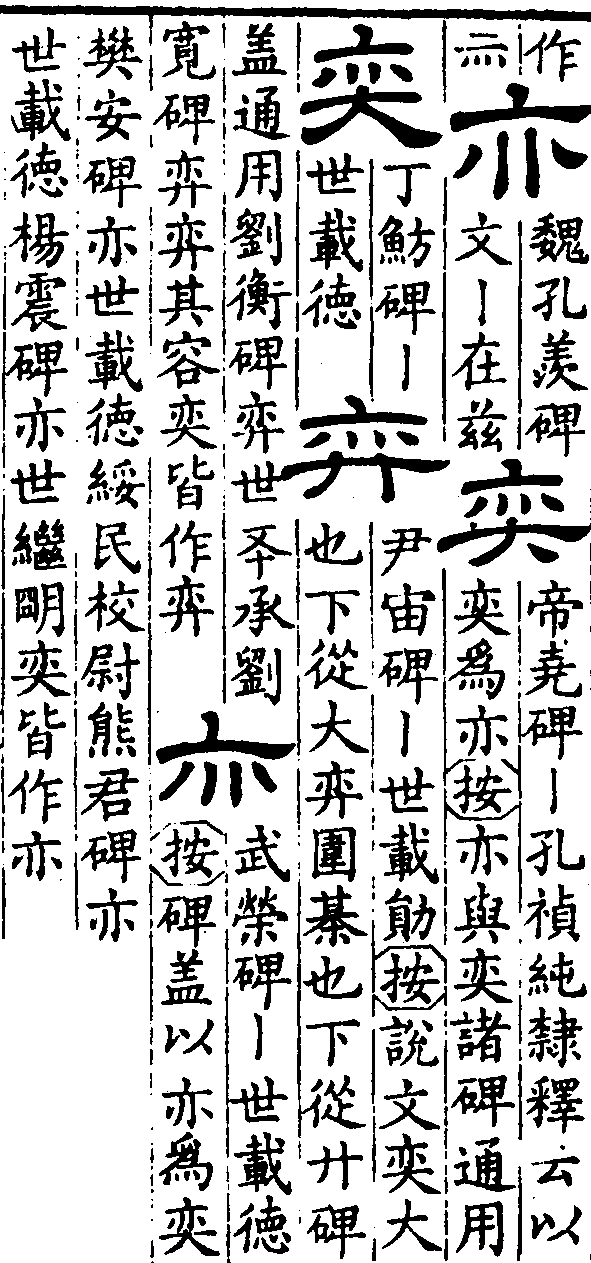 作
亦
魏孔羨碑
文丨在茲
奕
帝堯碑丨孔禎純隸釋云以
奕爲亦按亦與奕諸碑通用
奕
丁魴碑丨
世載徳
弈
尹宙碑丨世載勛按說文奕大
也下從大弈圍棊也下從廾碑
盖通用劉衡碑弈世㔻承劉
寛碑弈弈其容奕皆作弈
亦
武榮碑丨世載徳
按碑盖以亦爲奕
樊安碑亦世載徳綏民校尉熊君碑亦
世載徳楊震碑亦世繼明奕皆作亦